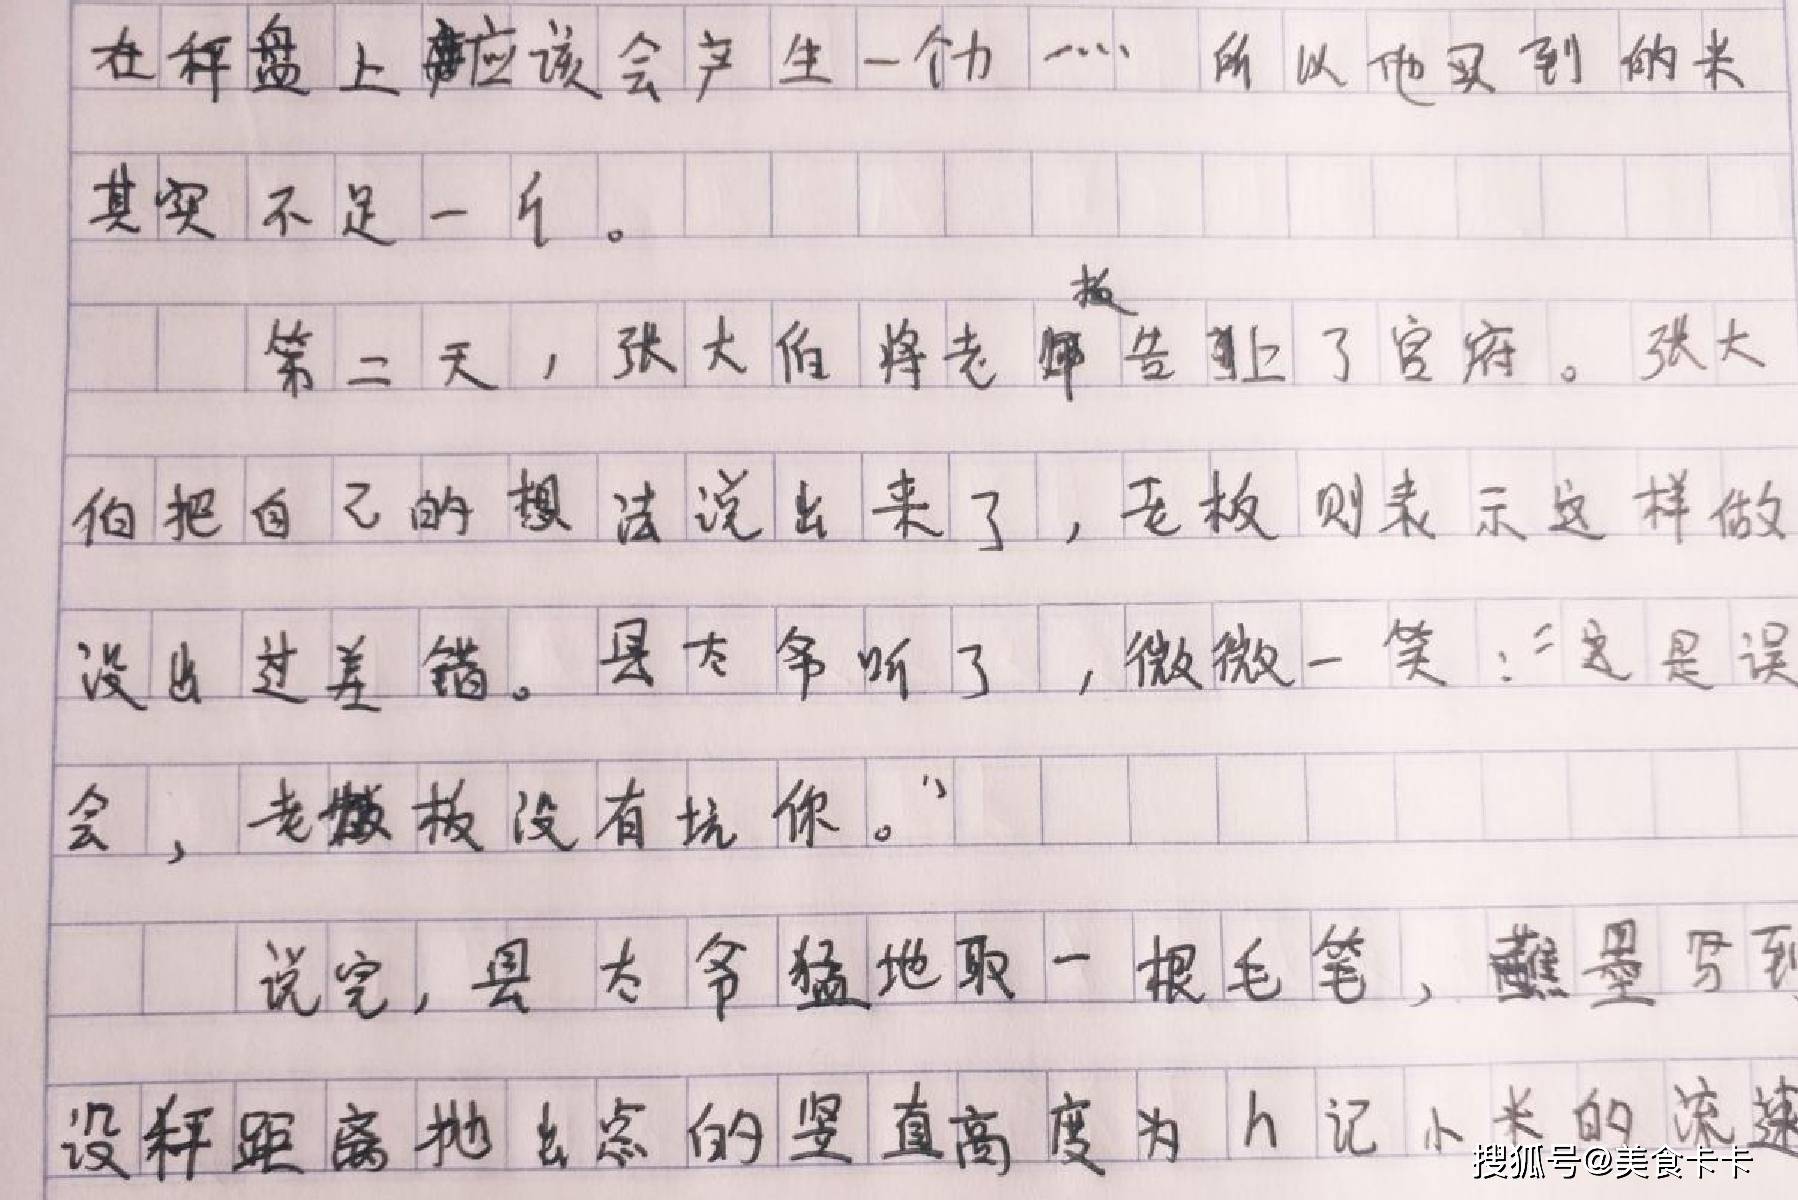 在秤盘上应该会产生一个力……所以他买到的米
其实不足一斤。
第二天，张大伯将老板告上了官府。张大
伯把自己的想法说出来了，老板则表示这样做
没出过差错。县太爷听了，微微一笑：“这是误
会，老板没有坑你。”
说完，县太爷猛地取一根毛笔，蘸墨写到
设秤距离抛出点的竖直高度为h记小米的流速
搜狐号@美食卡卡